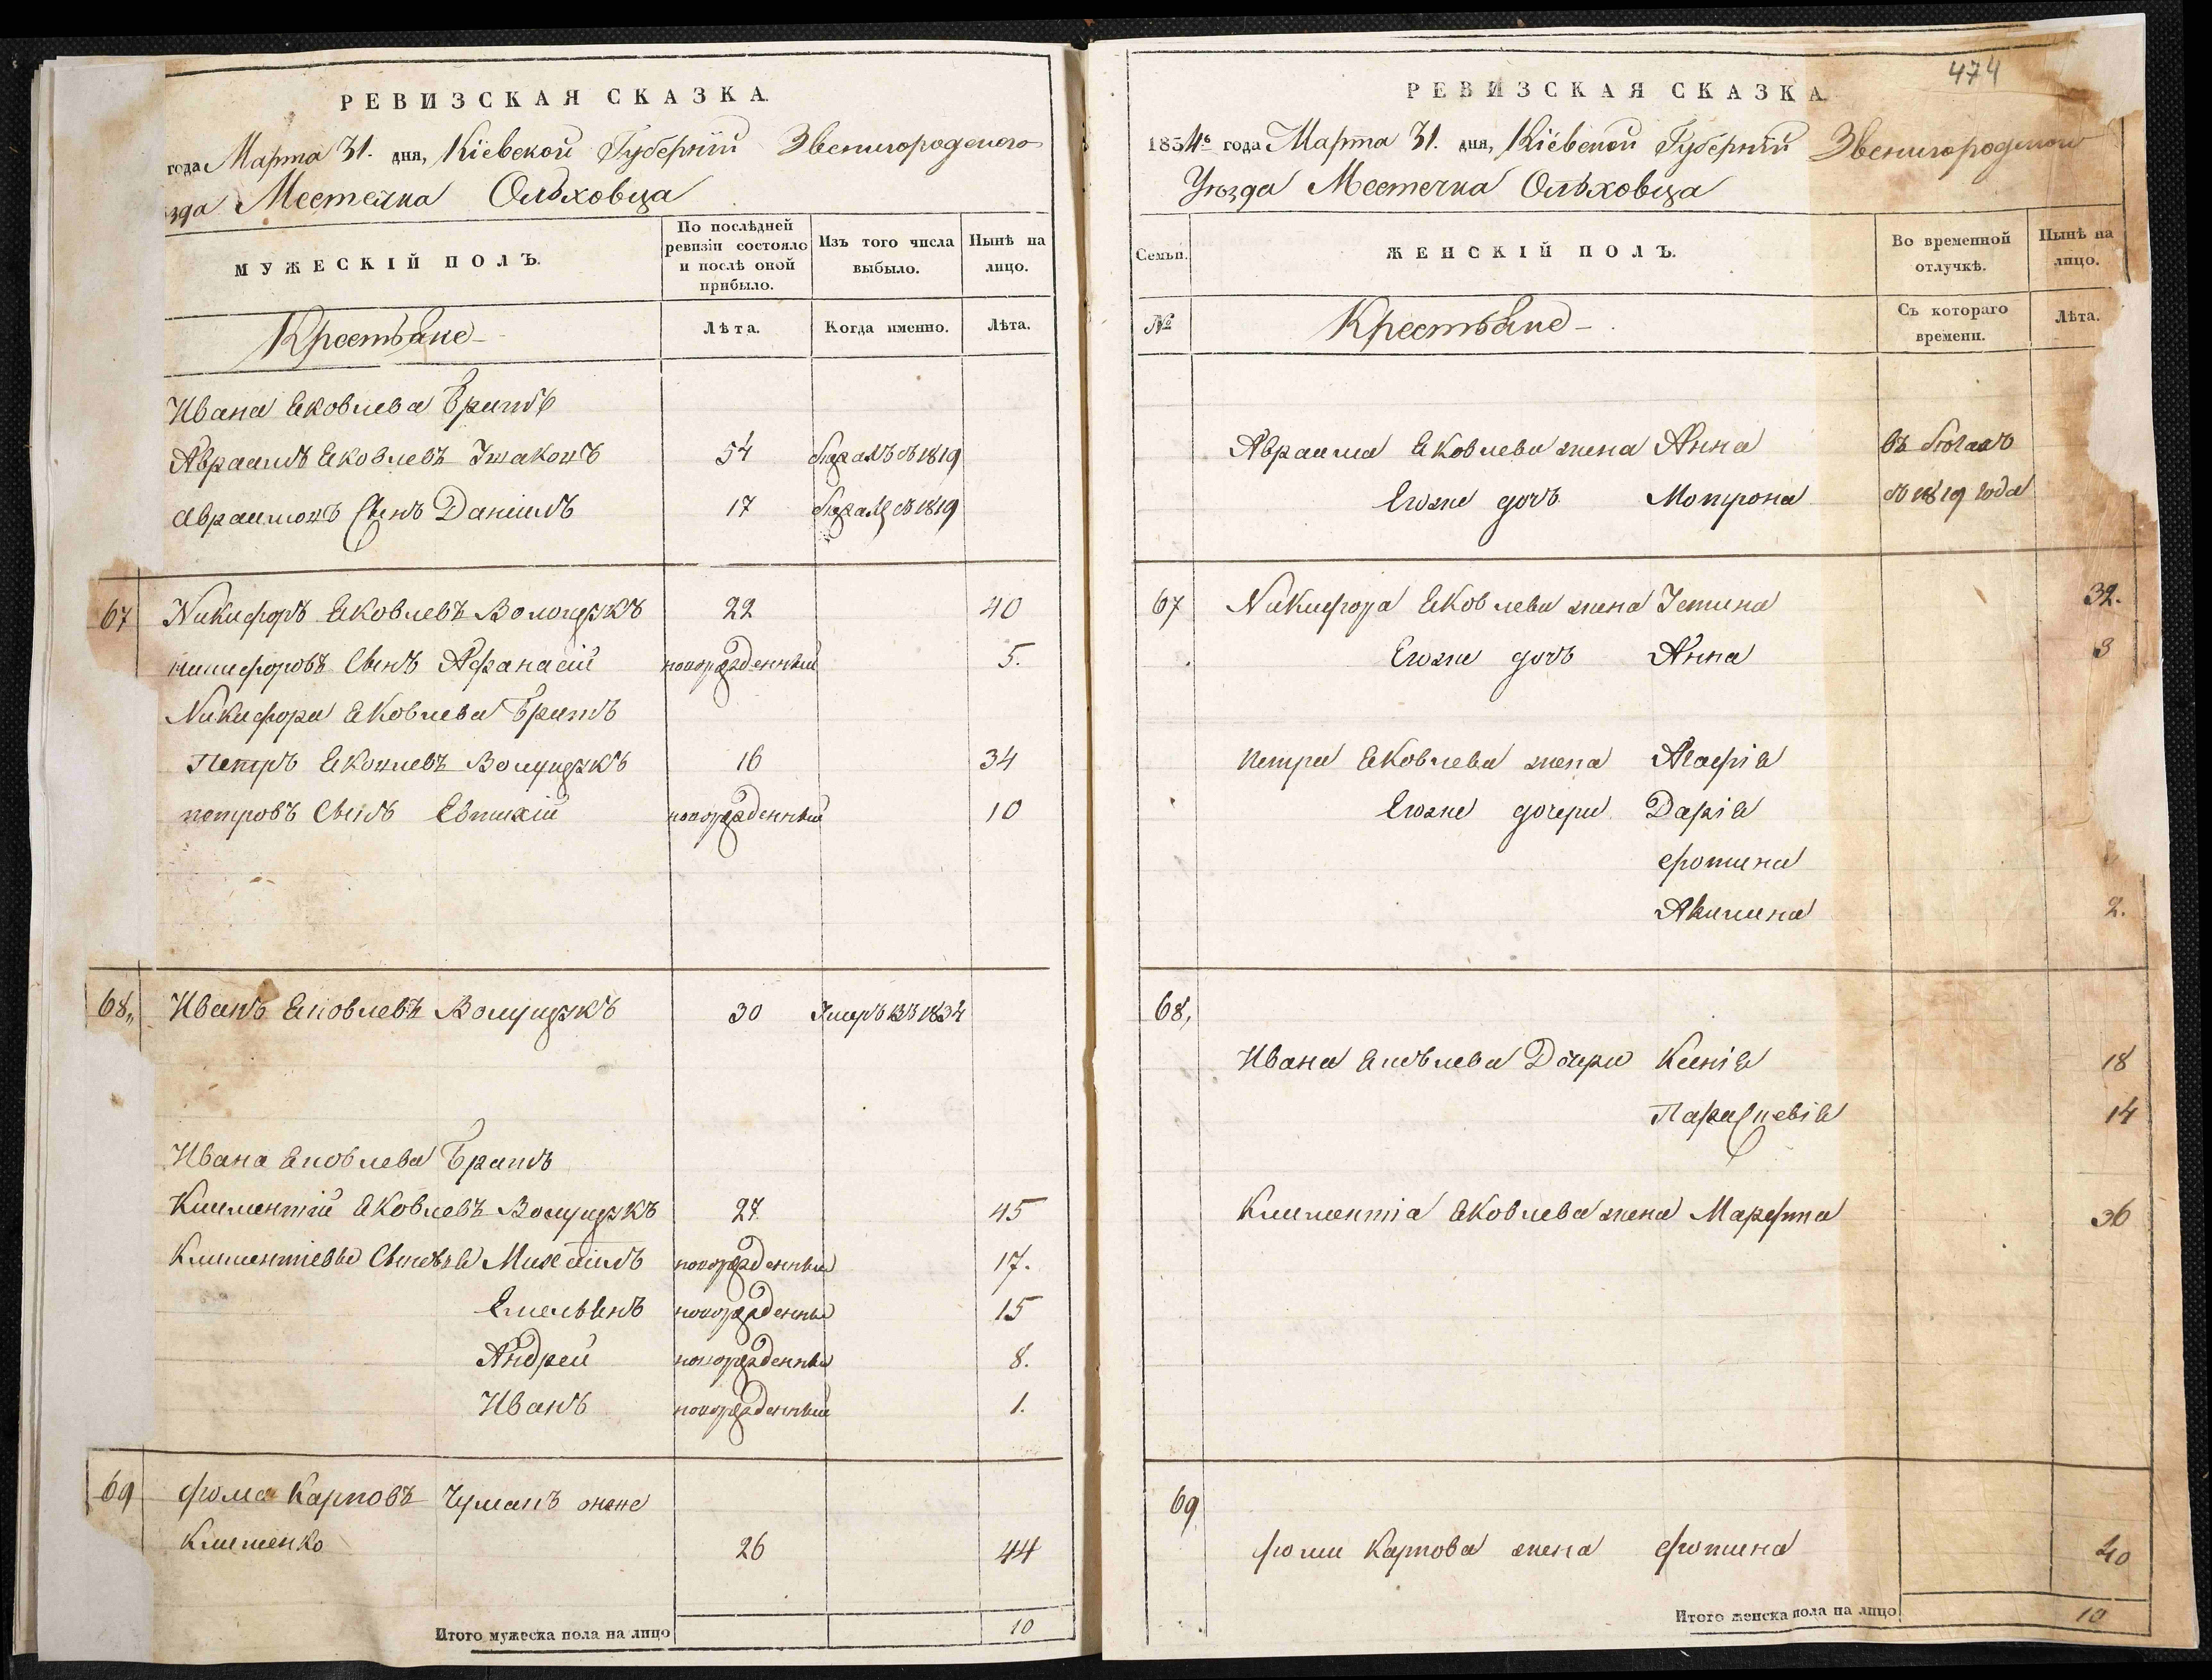 РЕВИЗСКАЯ СКАЗКА.
года Марта 31. дня, Кіевской Губерніи Звенигородского
зда Местечка Ольховца
МУЖЕСКІЙ ПОЛЪ.
По послѣдней ревизіи состояло и послѣ оной прибыло.
Изъ того числа выбыло.
Нынѣ на лицо.
Крестьяне
Лѣта.
Когда именно.
Лѣта.
Ивана Яковлева Братъ
Авраамъ Яковлевъ 54 съ 1819
Авраамовъ Сынъ Даніилъ 17 съ 1819
67 Никифоръ Яковлевъ 22 40
никифоровъ Сынъ Афанасій новорожденный 5.
Никифора Яковлева Братъ
Петръ Яковлевъ 16 34
петровъ Сынъ Евтихій новорожденный 10
68" Иванъ Яковлевъ 30 Умеръ въ 1834
Ивана Яковлева Братъ
Климентій Яковлевъ 27 45
Климентіевы Сыновья Михаилъ новорожденный 17.
Емельянъ новорожденный 15
Андрей новорожденный 8.
Иванъ новорожденный 1.
69 фома Карповъ Чуманъ онже
Клименко 26 44
Итого мужеска пола на лицо 10
474
РЕВИЗСКАЯ СКАЗКА.
1854го года Марта 31. дня, Кіевской Губерніи Звенигородского
Уѣзда Местечка Ольховца
Семьи.
ЖЕНСКІЙ ПОЛЪ.
Во временной отлучкѣ.
Нынѣ на лицо.
№
Крестьяне
Съ котораго времени.
Лѣта.
Авраама Яковлева жена Анна въ бѣгахъ
Егоже дочь Мотрона съ 1819 года
67 Никифора Яковлева жена Устина 32.
Егоже дочь Анна 3
петра Яковлева жена Агафія
Егоже дочери Дарія
фотина
Акилина 2.
68,
Ивана Яковлева Дочери Ксенія 18
Параскевія 14
Климентіа Яковлева жена Марфта 36
69
фомы Карпова жена фотина 40
Итого женска пола на лицо 10